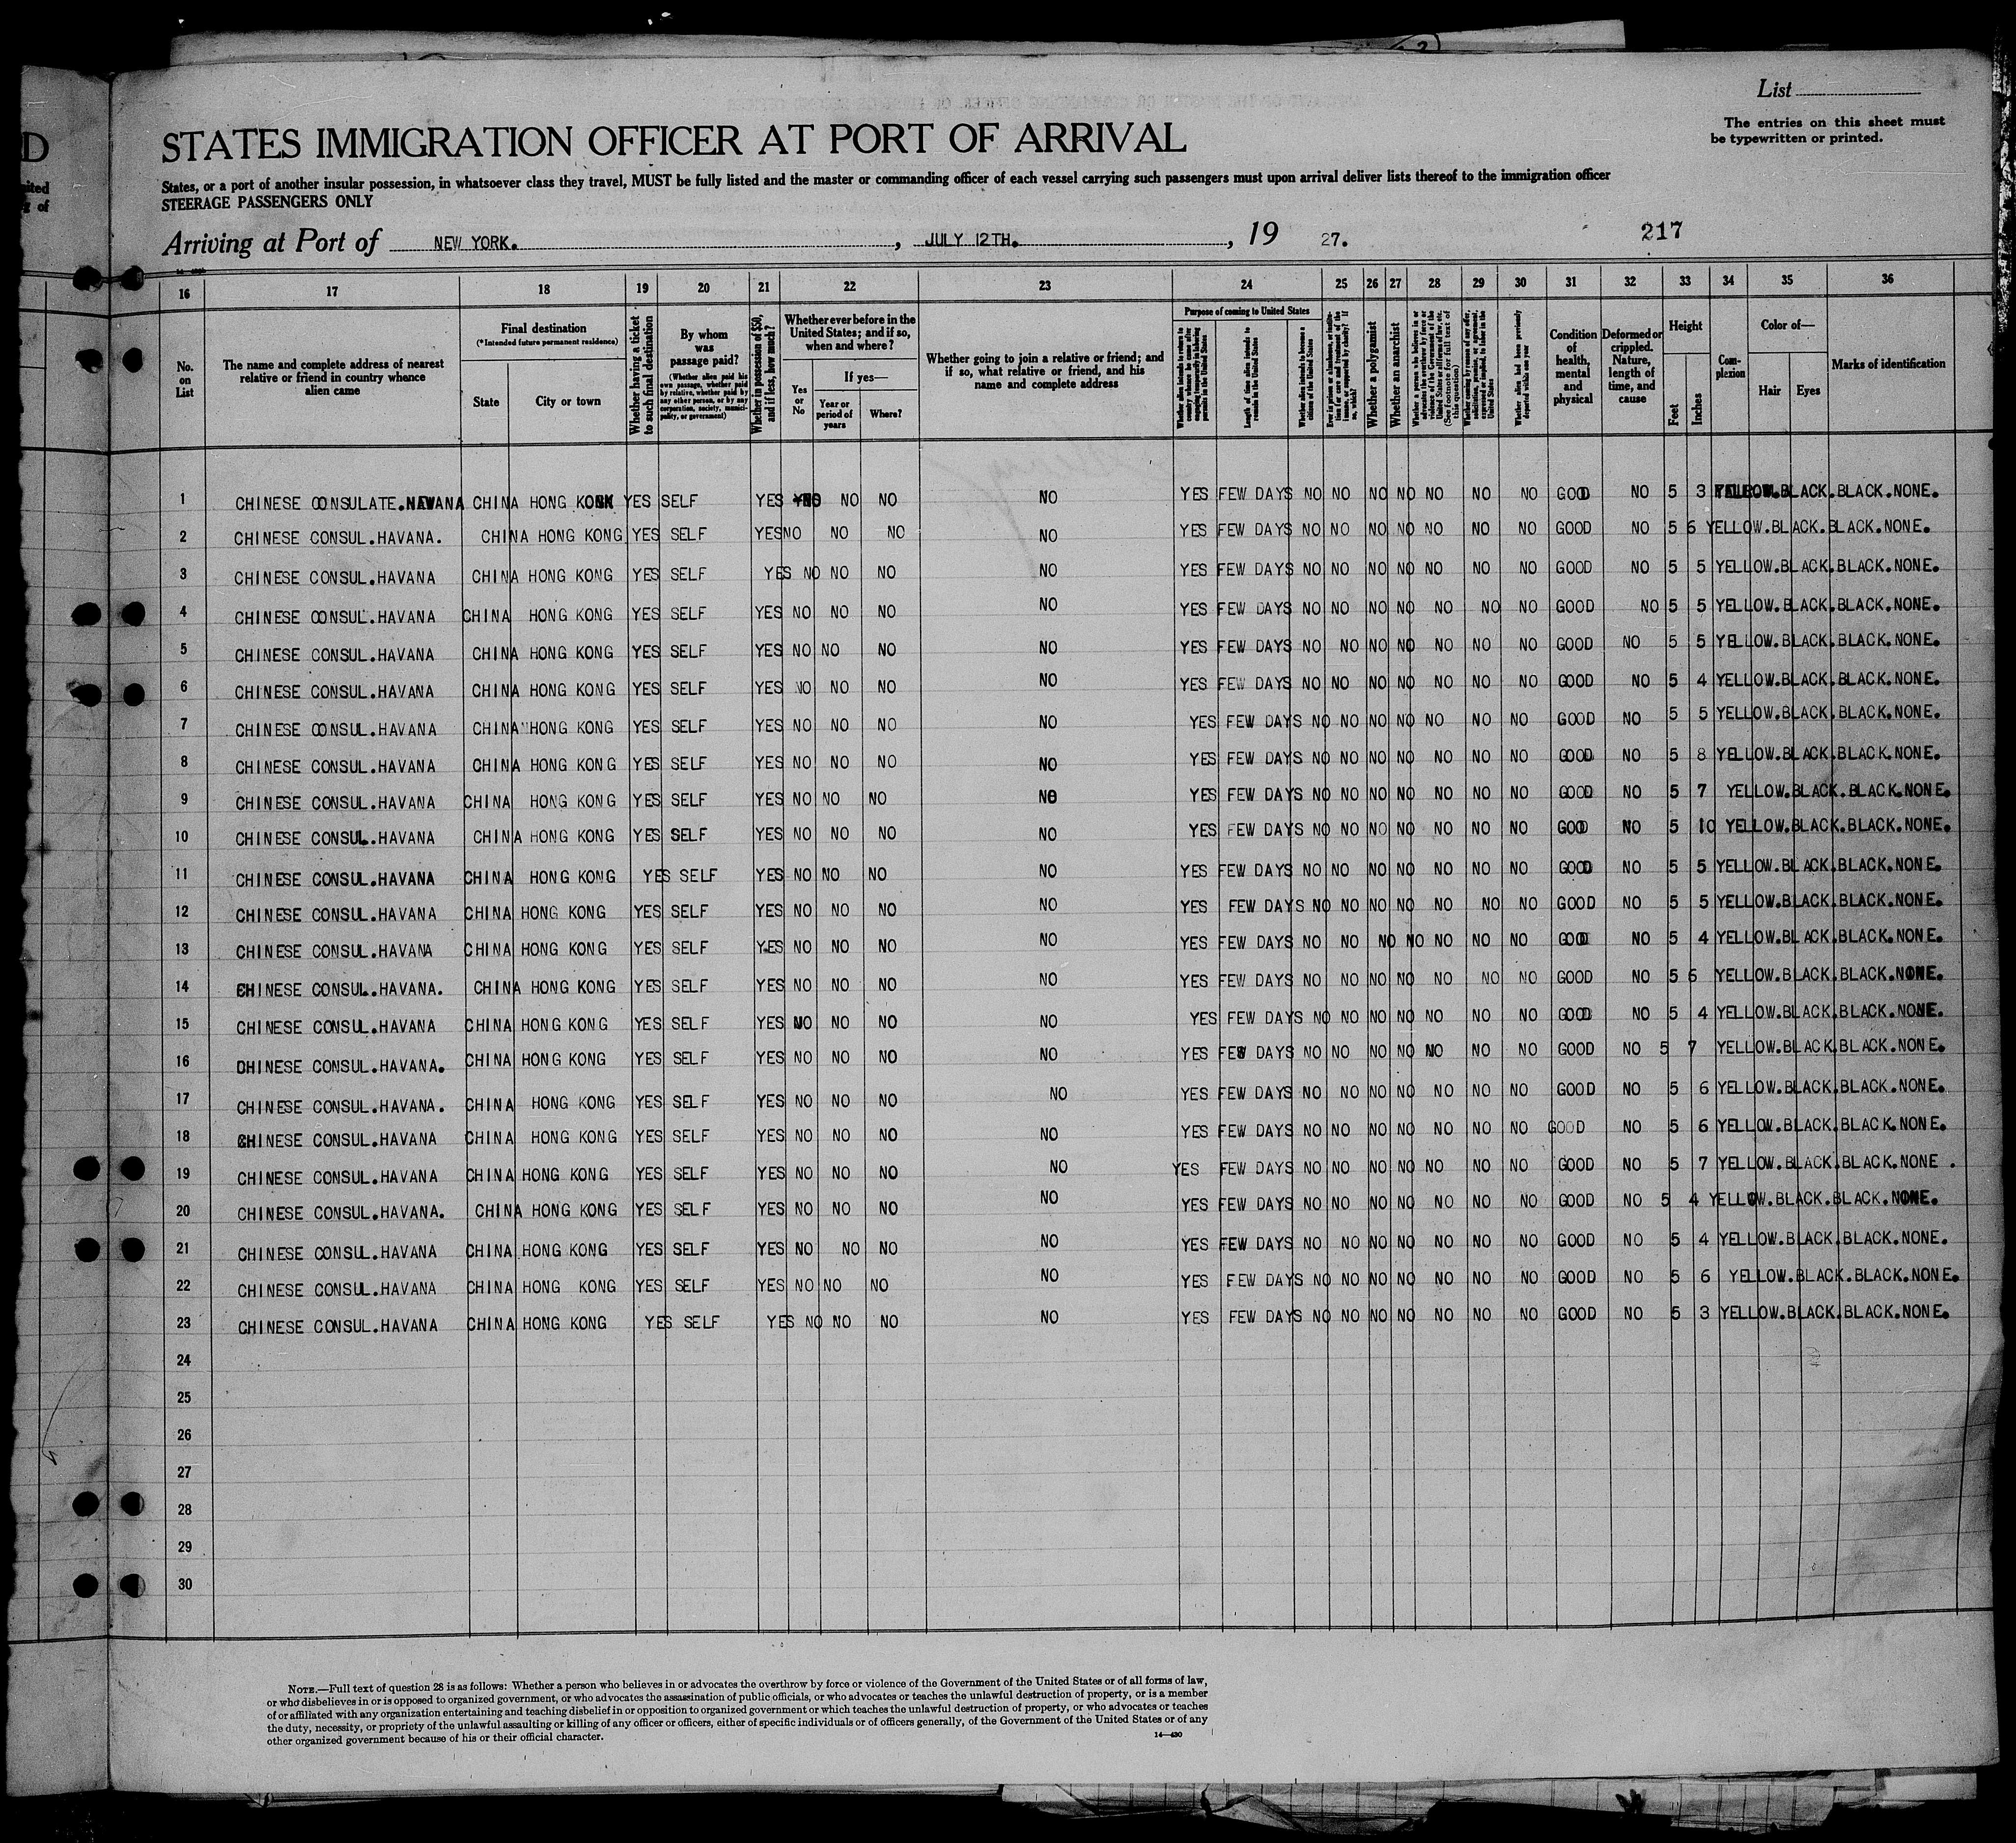 List
The entries on this sheet must
be typewritten or printed.
STATES IMMIGRATION OFFICER AT PORT OF ARRIVAL
States, or a port of another insular possession, in whatsoever class they travel, MUST be fully listed and the master or commanding officer of each vessel carrying such passengers must upon arrival deliver lists thereof to the immigration officer
STEERAGE PASSENGERS ONLY
Arriving at Port of NEW YORK. , JULY 12TH. , 19 27. 217
16 17 18 19 20 21 22 23 24 25 26 27 28 29 30 31 32 33 34 35 36
No. on List
The name and complete address of nearest relative or friend in country whence alien came
Final destination
(*Intended future permanent residence)
State
City or town
Whether having a ticket to such final destination
By whom was passage paid?
(Whether alien paid his own passage, whether paid by relative, whether paid by any other person, or by any corporation, society, municipality, or government)
Whether in possession of $50, and if less, how much?
Whether ever before in the United States; and if so, when and where?
Yes or No
If yes—
Year or period of years
Where?
Whether going to join a relative or friend; and if so, what relative or friend, and his name and complete address
Purpose of coming to United States
Whether alien intends to return to country whence he came after engaging temporarily in laboring pursuits in the United States
Length of time alien intends to remain in the United States
Whether alien intends to become a citizen of the United States
Whether a polygamist
Whether an anarchist
Whether alien had been previously deported within one year
Condition of health, mental and physical
Deformed or crippled. Nature, length of time, and cause
Height
Feet
Inches
Complexion
Color of—
Hair
Eyes
Marks of identification
1 CHINESE CONSULATE.HAVANA CHINA HONG KONG YES SELF YES NO NO NO NO YES FEW DAYS NO NO NO NO NO NO NO GOOD NO 5 3 YELLOW.BLACK.BLACK.NONE.
2 CHINESE CONSUL.HAVANA. CHINA HONG KONG YES SELF YES NO NO NO NO YES FEW DAYS NO NO NO NO NO NO NO GOOD NO 5 6 YELLOW.BLACK.BLACK.NONE.
3 CHINESE CONSUL.HAVANA CHINA HONG KONG YES SELF YES NO NO NO NO YES FEW DAYS NO NO NO NO NO NO NO GOOD NO 5 5 YELLOW.BLACK.BLACK.NONE.
4 CHINESE CONSUL.HAVANA CHINA HONG KONG YES SELF YES NO NO NO NO YES FEW DAYS NO NO NO NO NO NO NO GOOD NO 5 5 YELLOW.BLACK.BLACK.NONE.
5 CHINESE CONSUL.HAVANA CHINA HONG KONG YES SELF YES NO NO NO NO YES FEW DAYS NO NO NO NO NO NO NO GOOD NO 5 5 YELLOW.BLACK.BLACK.NONE.
6 CHINESE CONSUL.HAVANA CHINA HONG KONG YES SELF YES NO NO NO NO YES FEW DAYS NO NO NO NO NO NO NO GOOD NO 5 4 YELLOW.BLACK.BLACK.NONE.
7 CHINESE CONSUL.HAVANA CHINA HONG KONG YES SELF YES NO NO NO NO YES FEW DAYS NO NO NO NO NO NO NO GOOD NO 5 5 YELLOW.BLACK.BLACK.NONE.
8 CHINESE CONSUL.HAVANA CHINA HONG KONG YES SELF YES NO NO NO NO YES FEW DAYS NO NO NO NO NO NO NO GOOD NO 5 8 YELLOW.BLACK.BLACK.NONE.
9 CHINESE CONSUL.HAVANA CHINA HONG KONG YES SELF YES NO NO NO NO YES FEW DAYS NO NO NO NO NO NO NO GOOD NO 5 7 YELLOW.BLACK.BLACK.NONE.
10 CHINESE CONSUL.HAVANA CHINA HONG KONG YES SELF YES NO NO NO NO YES FEW DAYS NO NO NO NO NO NO NO GOOD NO 5 10 YELLOW.BLACK.BLACK.NONE.
11 CHINESE CONSUL.HAVANA CHINA HONG KONG YES SELF YES NO NO NO NO YES FEW DAYS NO NO NO NO NO NO NO GOOD NO 5 5 YELLOW.BLACK.BLACK.NONE.
12 CHINESE CONSUL.HAVANA CHINA HONG KONG YES SELF YES NO NO NO NO YES FEW DAYS NO NO NO NO NO NO NO GOOD NO 5 5 YELLOW.BLACK.BLACK.NONE.
13 CHINESE CONSUL.HAVANA CHINA HONG KONG YES SELF YES NO NO NO NO YES FEW DAYS NO NO NO NO NO NO NO GOOD NO 5 4 YELLOW.BLACK.BLACK.NONE.
14 CHINESE CONSUL.HAVANA. CHINA HONG KONG YES SELF YES NO NO NO NO YES FEW DAYS NO NO NO NO NO NO NO GOOD NO 5 6 YELLOW.BLACK.BLACK.NONE.
15 CHINESE CONSUL.HAVANA CHINA HONG KONG YES SELF YES NO NO NO NO YES FEW DAYS NO NO NO NO NO NO NO GOOD NO 5 4 YELLOW.BLACK.BLACK.NONE.
16 CHINESE CONSUL.HAVANA. CHINA HONG KONG YES SELF YES NO NO NO NO YES FEW DAYS NO NO NO NO NO NO NO GOOD NO 5 7 YELLOW.BLACK.BLACK.NONE.
17 CHINESE CONSUL.HAVANA. CHINA HONG KONG YES SELF YES NO NO NO NO YES FEW DAYS NO NO NO NO NO NO NO GOOD NO 5 6 YELLOW.BLACK.BLACK.NONE.
18 CHINESE CONSUL.HAVANA CHINA HONG KONG YES SELF YES NO NO NO NO YES FEW DAYS NO NO NO NO NO NO NO GOOD NO 5 6 YELLOW.BLACK.BLACK.NONE.
19 CHINESE CONSUL.HAVANA CHINA HONG KONG YES SELF YES NO NO NO NO YES FEW DAYS NO NO NO NO NO NO NO GOOD NO 5 7 YELLOW.BLACK.BLACK.NONE .
20 CHINESE CONSUL.HAVANA. CHINA HONG KONG YES SELF YES NO NO NO NO YES FEW DAYS NO NO NO NO NO NO NO GOOD NO 5 4 YELLOW.BLACK.BLACK.NONE.
21 CHINESE CONSUL.HAVANA CHINA HONG KONG YES SELF YES NO NO NO NO YES FEW DAYS NO NO NO NO NO NO NO GOOD NO 5 4 YELLOW.BLACK.BLACK.NONE.
22 CHINESE CONSUL.HAVANA CHINA HONG KONG YES SELF YES NO NO NO NO YES FEW DAYS NO NO NO NO NO NO NO GOOD NO 5 6 YELLOW.BLACK.BLACK.NONE.
23 CHINESE CONSUL.HAVANA CHINA HONG KONG YES SELF YES NO NO NO NO YES FEW DAYS NO NO NO NO NO NO NO GOOD NO 5 3 YELLOW.BLACK.BLACK.NONE.
24
25
26
27
28
29
30
NOTE.—Full text of question 28 is as follows: Whether a person who believes in or advocates the overthrow by force or violence of the Government of the United States or of all forms of law,
or who disbelieves in or is opposed to organized government, or who advocates the assassination of public officials, or who advocates or teaches the unlawful destruction of property, or is a member
of or affiliated with any organization entertaining and teaching disbelief in or opposition to organized government or which teaches the unlawful destruction of property, or who advocates or teaches
the duty, necessity, or propriety of the unlawful assaulting or killing of any officer or officers, either of specific individuals or of officers generally, of the Government of the United States or of any
other organized government because of his or their official character.
14—430